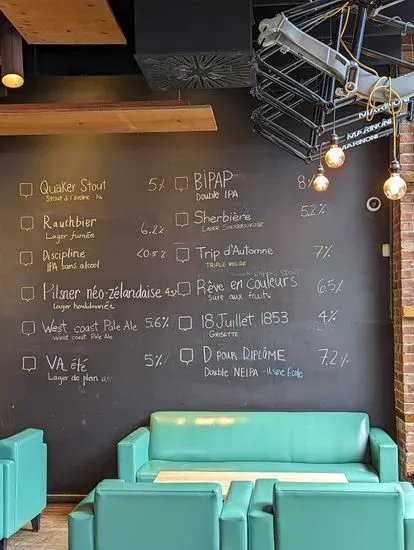 Quaker Stout 5%
Stout à l'avoine N2
Rauchbier 6.2%
Lager fumée
Discipline <0.5%
IPA sans alcool
Pilsner néo-zélandaise 4.5%
Lager houblonnée
West coast Pale Ale 5.6%
West coast Pale Ale
VA été 5%
Lager de plein air
BIPAP 8%
Double IPA
Sherbière 5.2%
LAGER SHERBROOKOISE
Trip d'Automne 7%
TRIPLE BELGE
Rêve en couleurs 6.5%
Sure aux fruits
18 Juillet 1853 4%
GRISETTE
D POUR DIPLÔME 7.2%
Double NEIPA - Usine École
MARINONI
MARINONI